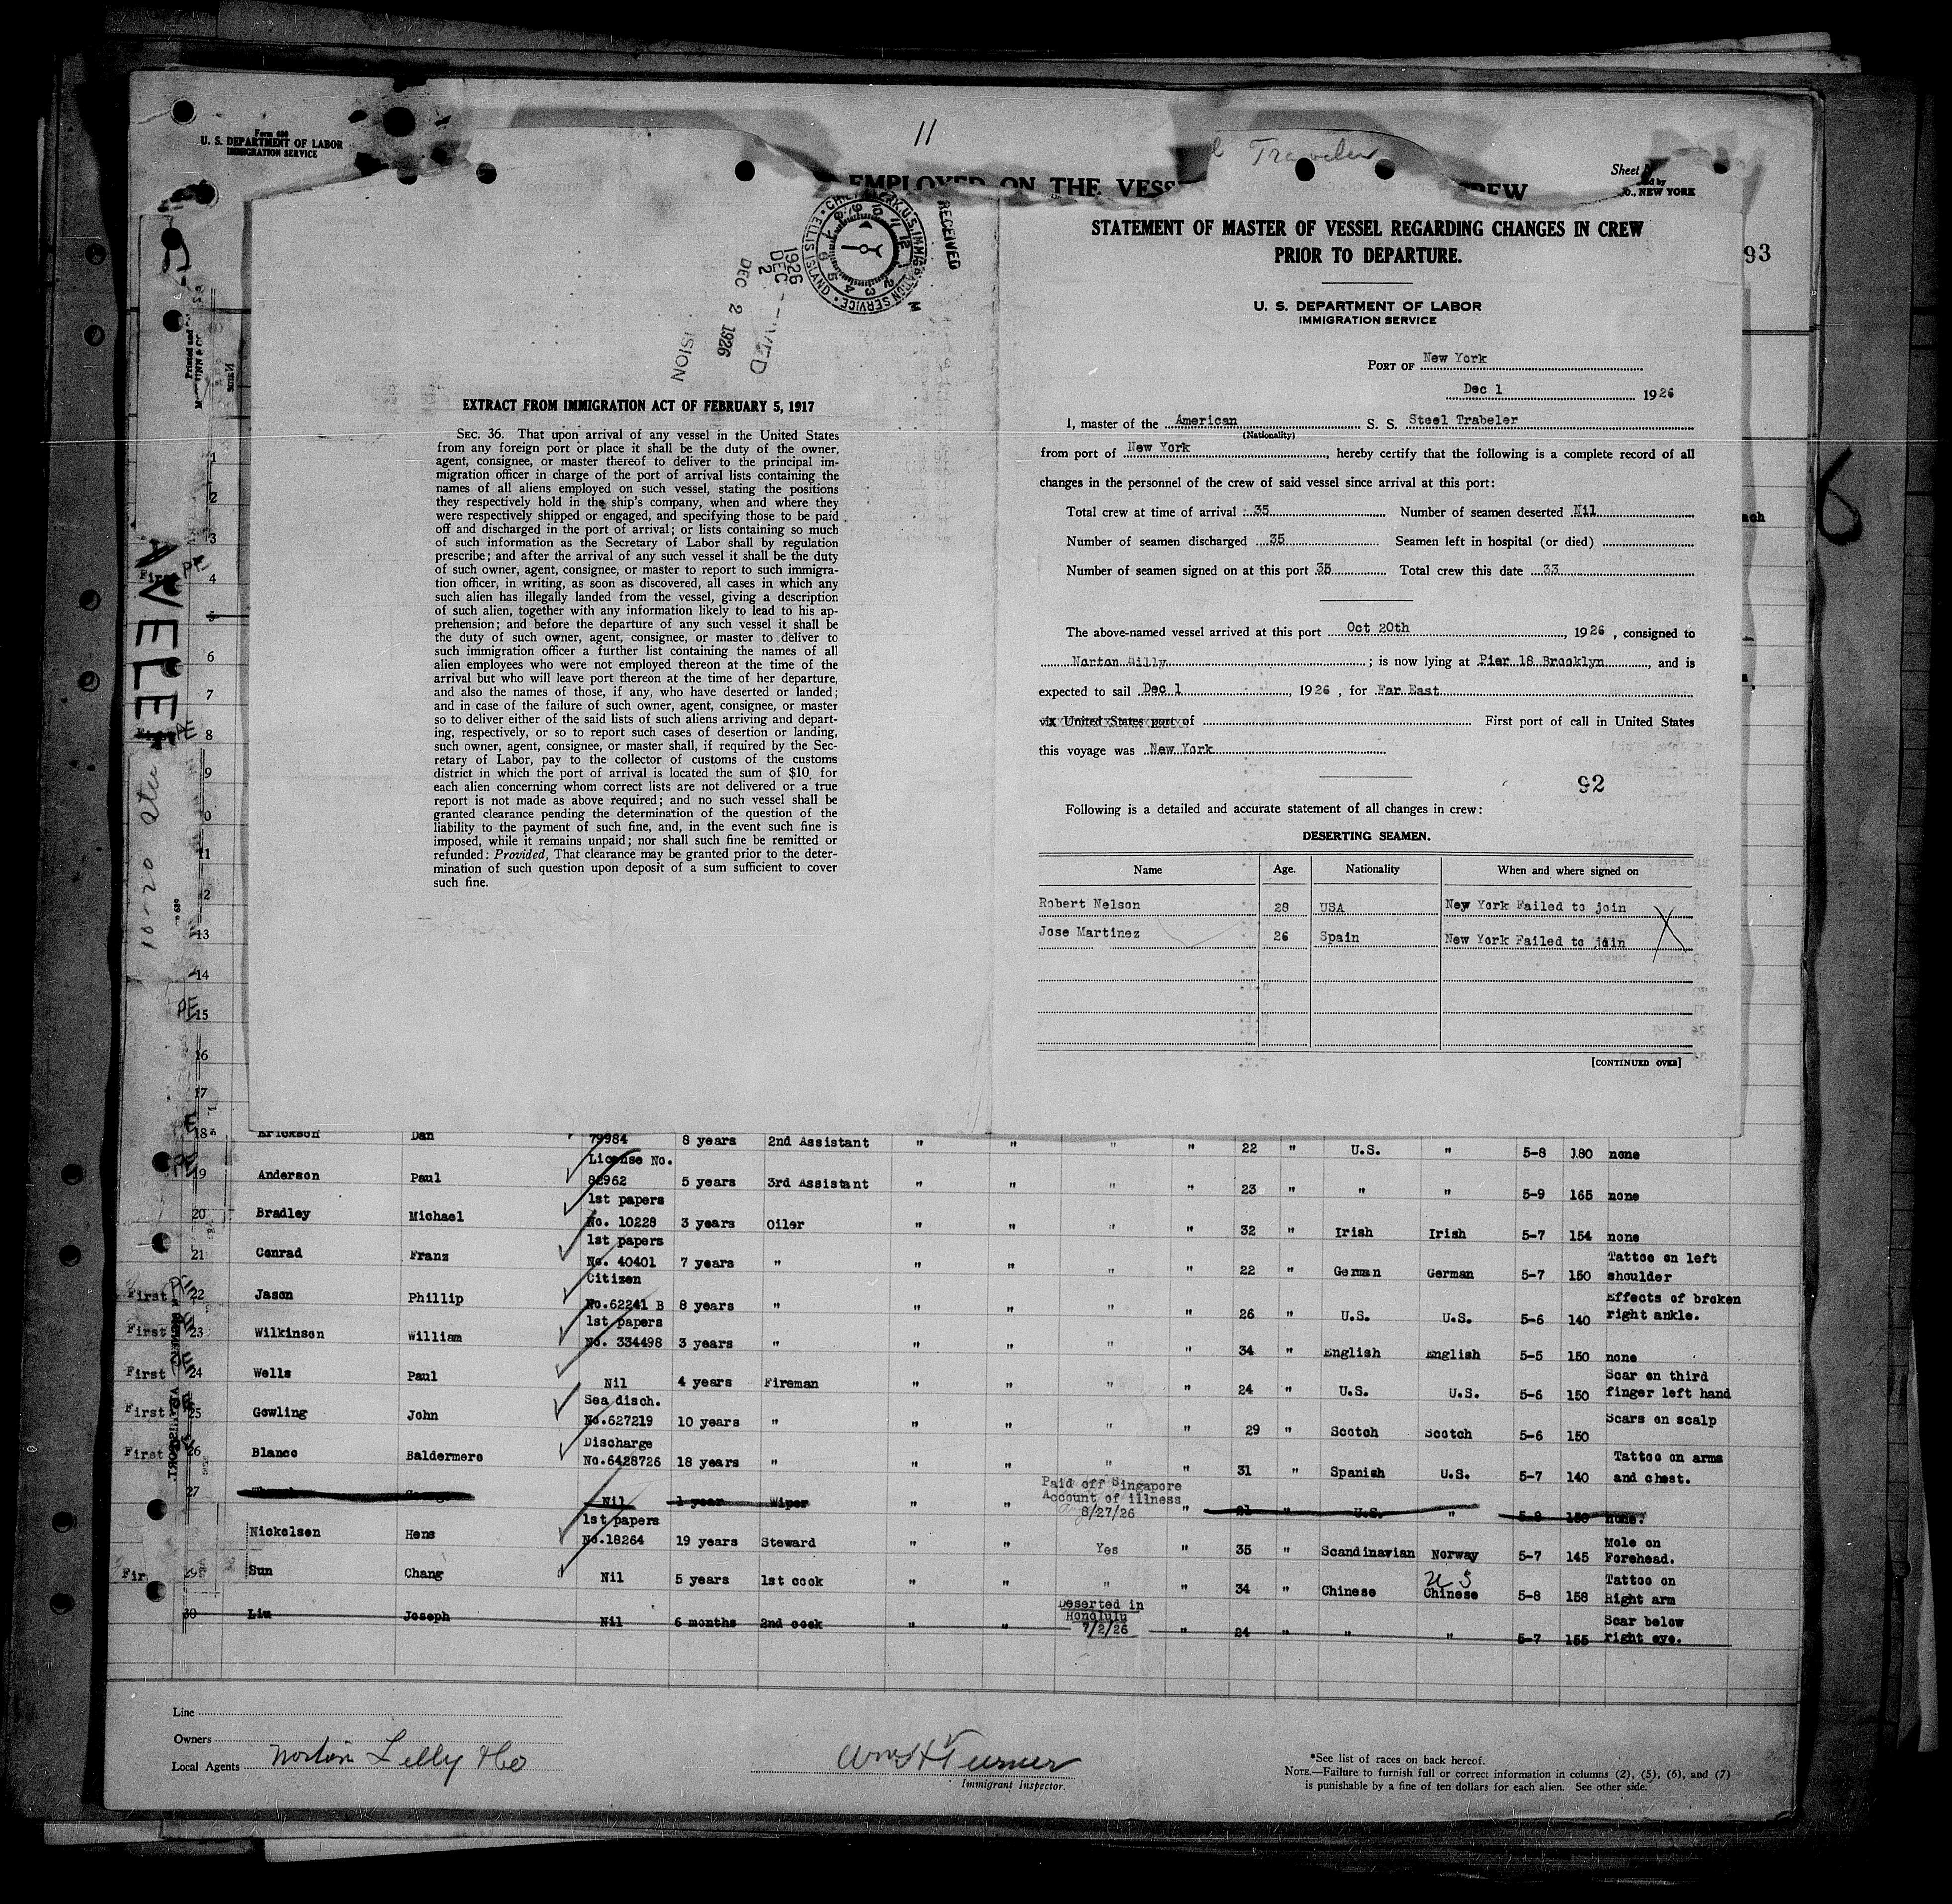 11
Traveler
Form 680
U. S. DEPARTMENT OF LABOR
IMMIGRATION SERVICE
EMPLOYED ON THE VESS
CREW
Sheet
NEW YORK
93
CHIEF CLERK, U.S. IMMIGRATION SERVICE • ELLIS ISLAND •
RECEIVED
1926
DEC
2
DEC 2 1926
EXTRACT FROM IMMIGRATION ACT OF FEBRUARY 5, 1917
SEC. 36. That upon arrival of any vessel in the United States
from any foreign port or place it shall be the duty of the owner,
agent, consignee, or master thereof to deliver to the principal im-
migration officer in charge of the port of arrival lists containing the
names of all aliens employed on such vessel, stating the positions
they respectively hold in the ship's company, when and where they
were respectively shipped or engaged, and specifying those to be paid
off and discharged in the port of arrival; or lists containing so much
of such information as the Secretary of Labor shall by regulation
prescribe; and after the arrival of any such vessel it shall be the duty
of such owner, agent, consignee, or master to report to such immigra-
tion officer, in writing, as soon as discovered, all cases in which any
such alien has illegally landed from the vessel, giving a description
of such alien, together with any information likely to lead to his ap-
prehension; and before the departure of any such vessel it shall be
the duty of such owner, agent, consignee, or master to deliver to
such immigration officer a further list containing the names of all
alien employees who were not employed thereon at the time of the
arrival but who will leave port thereon at the time of her departure,
and also the names of those, if any, who have deserted or landed;
and in case of the failure of such owner, agent, consignee, or master
so to deliver either of the said lists of such aliens arriving and depart-
ing, respectively, or so to report such cases of desertion or landing,
such owner, agent, consignee, or master shall, if required by the Sec-
retary of Labor, pay to the collector of customs of the customs
district in which the port of arrival is located the sum of $10 for
each alien concerning whom correct lists are not delivered or a true
report is not made as above required; and no such vessel shall be
granted clearance pending the determination of the question of the
liability to the payment of such fine, and, in the event such fine is
imposed, while it remains unpaid; nor shall such fine be remitted or
refunded: Provided, That clearance may be granted prior to the deter-
mination of such question upon deposit of a sum sufficient to cover
such fine.
STATEMENT OF MASTER OF VESSEL REGARDING CHANGES IN CREW
PRIOR TO DEPARTURE.
U. S. DEPARTMENT OF LABOR
IMMIGRATION SERVICE
PORT OF New York
Dec 1 1926
I, master of the American S. S. Steel Trabeler
(Nationality)
from port of New York, hereby certify that the following is a complete record of all
changes in the personnel of the crew of said vessel since arrival at this port:
Total crew at time of arrival 35 Number of seamen deserted Nil
Number of seamen discharged 35 Seamen left in hospital (or died)
Number of seamen signed on at this port 35 Total crew this date 33
The above-named vessel arrived at this port Oct 20th, 1926, consigned to
Norton Lilly; is now lying at Pier 18 Brooklyn, and is
expected to sail Dec 1, 1926, for Far East
via United States port of First port of call in United States
this voyage was New York
92
Following is a detailed and accurate statement of all changes in crew:
DESERTING SEAMEN.
Name Age. Nationality When and where signed on
Robert Nelson 28 USA New York Failed to join
Jose Martinez 26 Spain New York Failed to join
[CONTINUED OVER]
18 Erickson Dan 79984 8 years 2nd Assistant " " " " 22 " U.S. " 5-8 180 none
19 Anderson Paul License No. 82962 5 years 3rd Assistant " " " " 23 " " " 5-9 165 none
20 Bradley Michael 1st papers No. 10228 3 years Oiler " " " " 32 " Irish Irish 5-7 154 none
21 Conrad Franz 1st papers No. 40401 7 years " " " " " 22 " German German 5-7 150 Tattoo on left shoulder
First 22 Jason Phillip Citizen No.62241 B 8 years " " " " " 26 " U.S. U.S. 5-6 140 Effects of broken right ankle.
First 23 Wilkinson William 1st papers No. 334498 3 years " " " " " 34 " English English 5-5 150 none
First 24 Wells Paul Nil 4 years Fireman " " " " 24 " U.S. U.S. 5-6 150 Scar on third finger left hand
First 25 Gowling John Sea disch. No.627219 10 years " " " " " 29 " Scotch Scotch 5-6 150 Scars on scalp
First 26 Blanco Baldermero Discharge No.6428726 18 years " " " " " 31 " Spanish U.S. 5-7 140 Tattoo on arms and chest.
27 Nil 1 year Wiper " " Paid off Singapore Account of illness 8/27/26 " 21 " U.S. " 5-8 150 none.
Nickelsen Hens 1st papers No.18264 19 years Steward " " Yes " 35 " Scandinavian Norway 5-7 145 Mole on Forehead.
Fir 29 Sun Chang Nil 5 years 1st cook " " " " 34 " Chinese U S Chinese 5-8 158 Tattoo on Right arm
30 Liu Joseph Nil 6 months 2nd cook " " Deserted in Honolulu 7/2/26 " 24 " " " 5-7 155 Scar below right eye.
Line
Owners
Local Agents Norton Lilly & Co
Wm H Turner
Immigrant Inspector.
*See list of races on back hereof.
NOTE.—Failure to furnish full or correct information in columns (2), (5), (6), and (7)
is punishable by a fine of ten dollars for each alien. See other side.